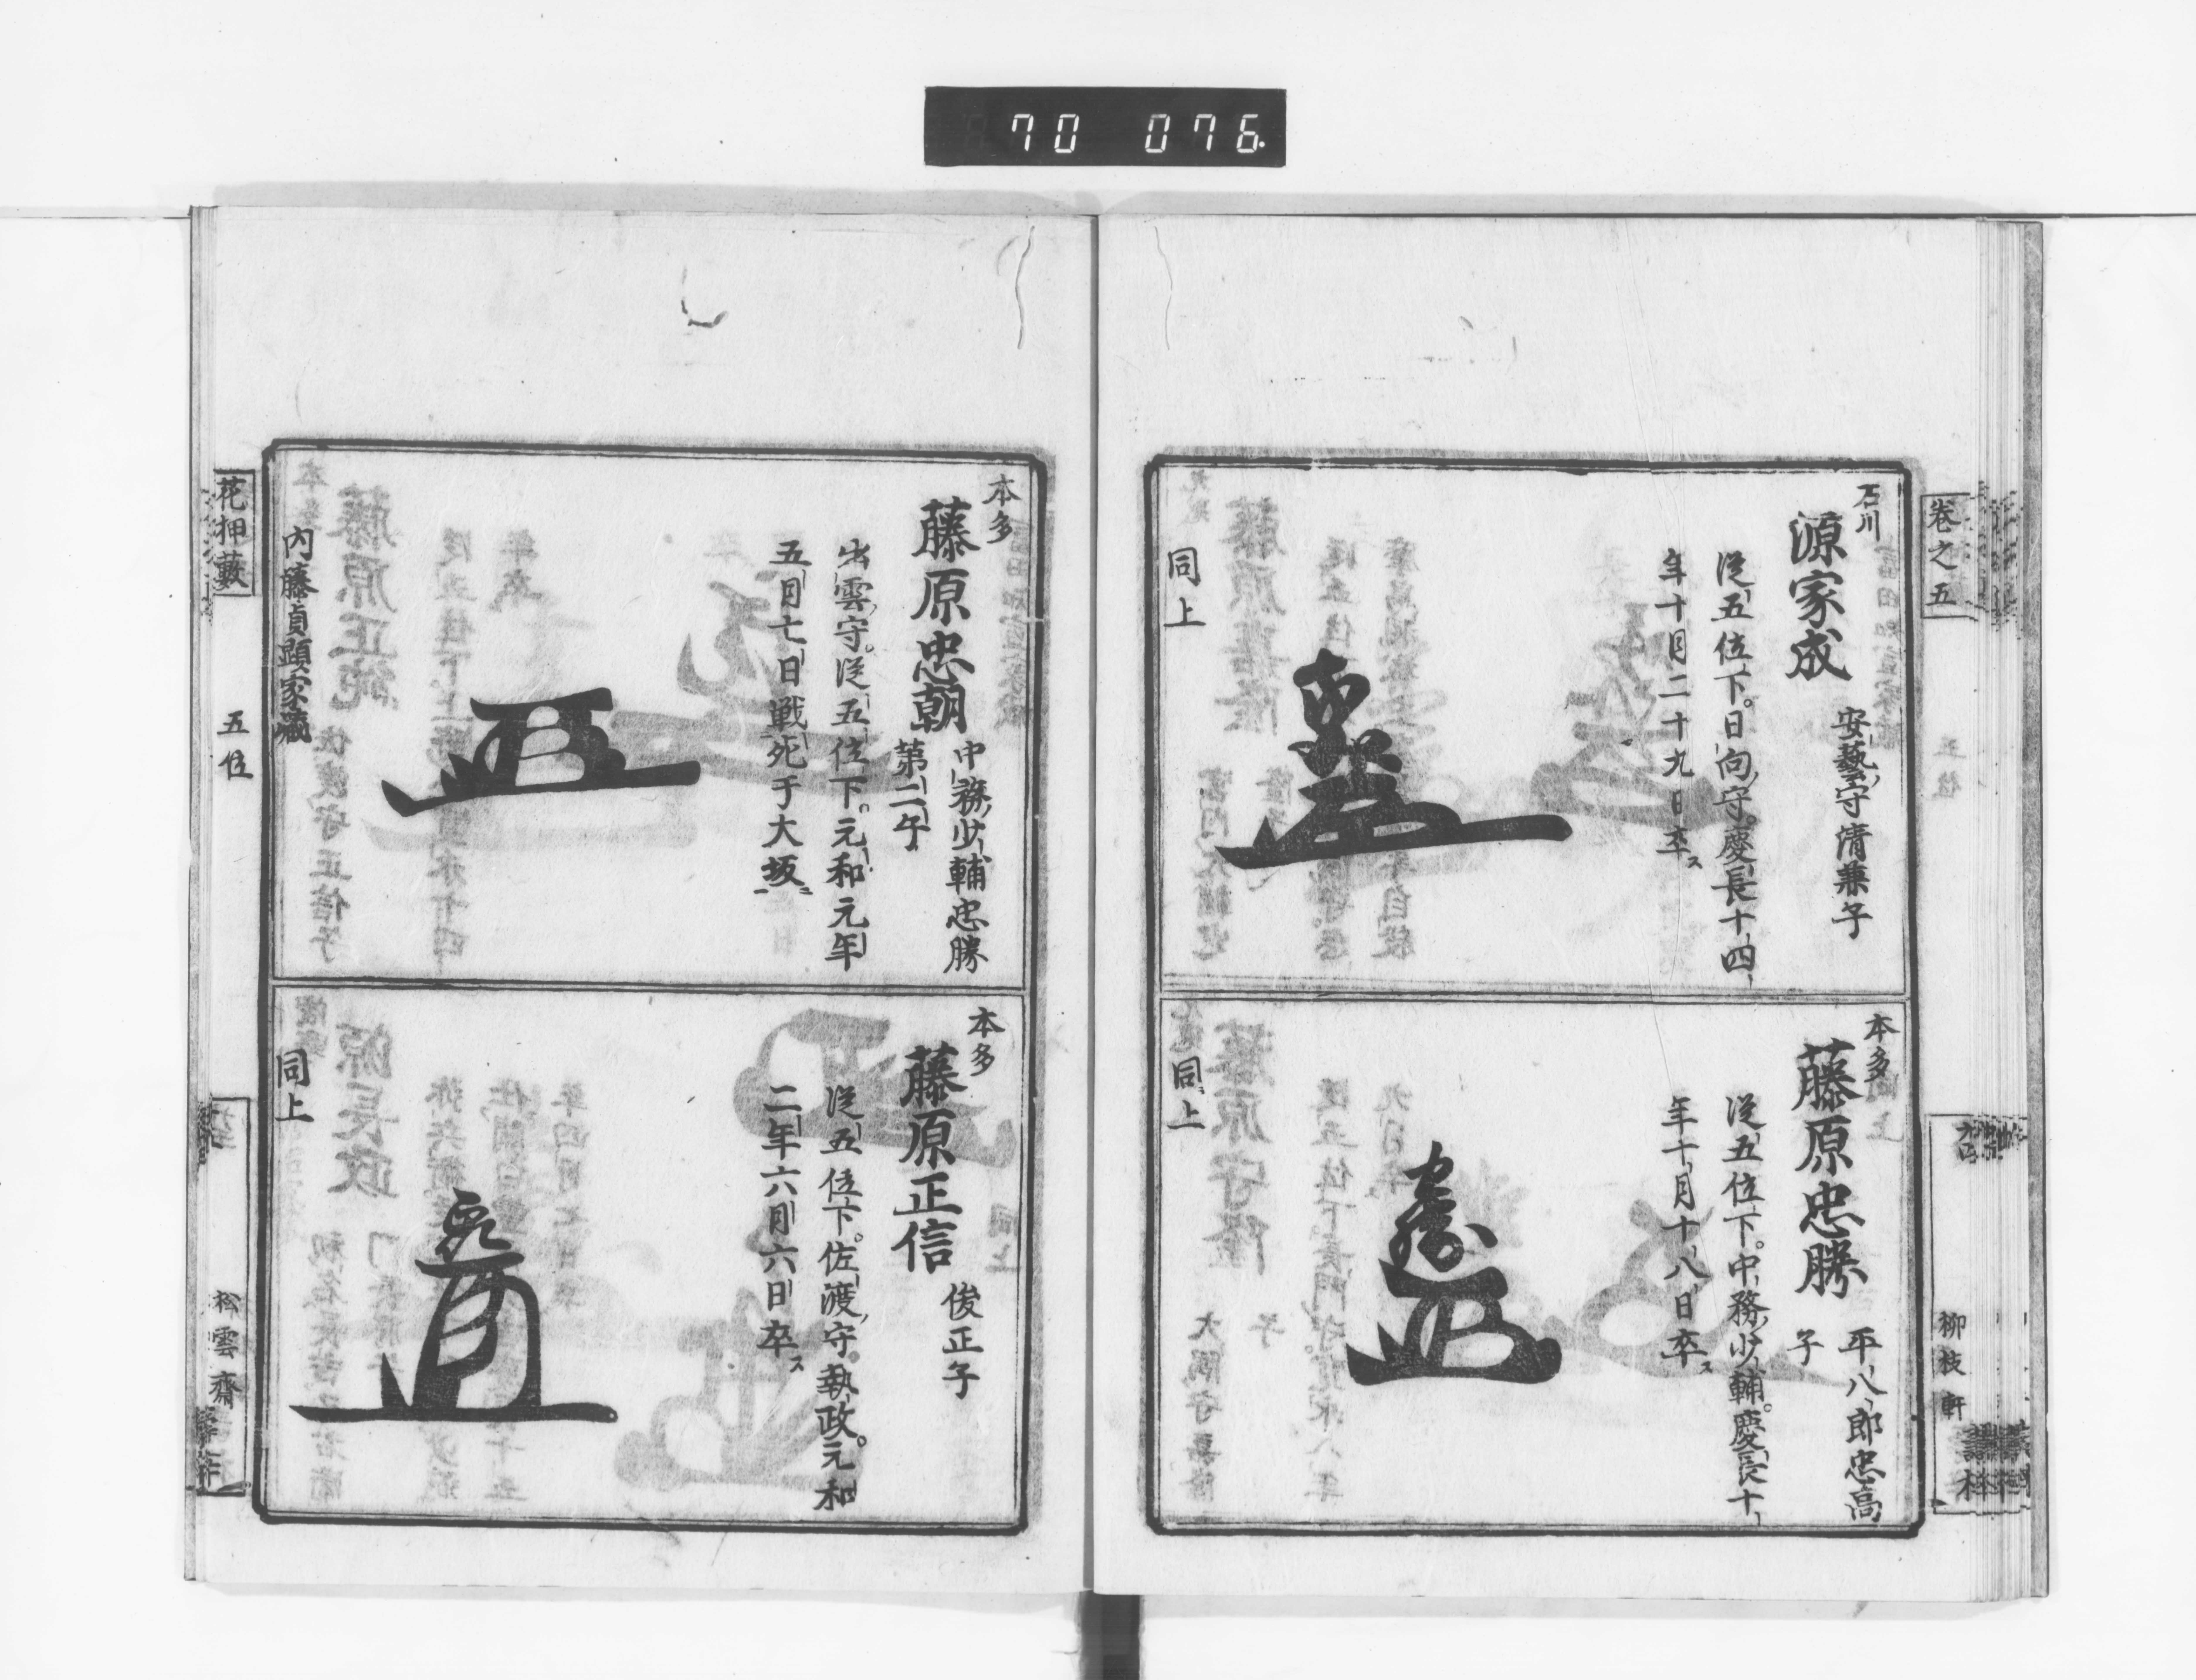 70 076.
卷之五
柳枝軒
石川
源家成
安藝守清兼子
從五位下。日向守。慶長十四
年十月二十九日卒ス
同上
本多
藤原忠勝
平八郎忠高
子
從五位下。中務少輔。慶長十
年十月十八日卒ス
同上
本多
藤原忠朝
中務少輔忠勝
第二子
出雲守。從五位下。元和元年
五月七日戦死于大坂ニ
內藤貞顕家藏
本多
藤原正信
俊正子
從五位下。佐渡守。執政。元和
二年六月六日卒ス
同上
花押藪
五位
松雲齋